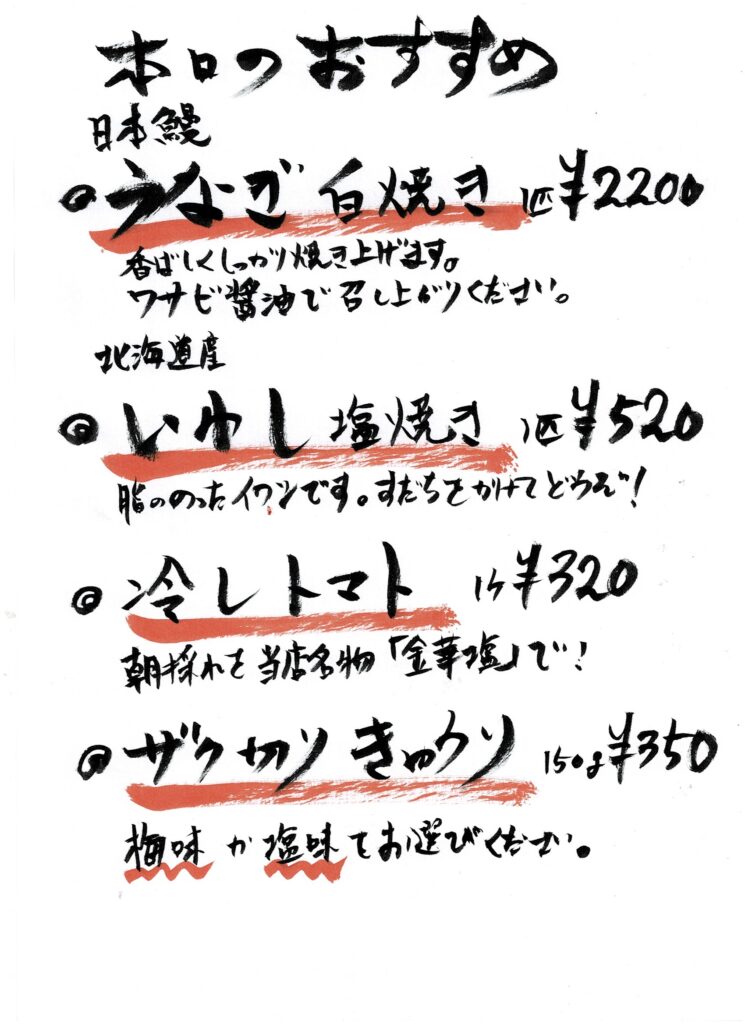 本日のおすすめ
日本鰻
◎うなぎ 白焼き 1匹 ¥2200
香ばしくしっかり焼き上げます。
ワサビ醤油で召し上がりください。
北海道産
◎いわし 塩焼き 1匹 ¥520
脂ののったイワシです。すだちをかけてどうぞ!
◎冷しトマト 1ケ ¥320
朝採れを当店名物「金華塩」で!
◎ザク切りきゅうり 150g ¥350
梅味か塩味でお選びください。